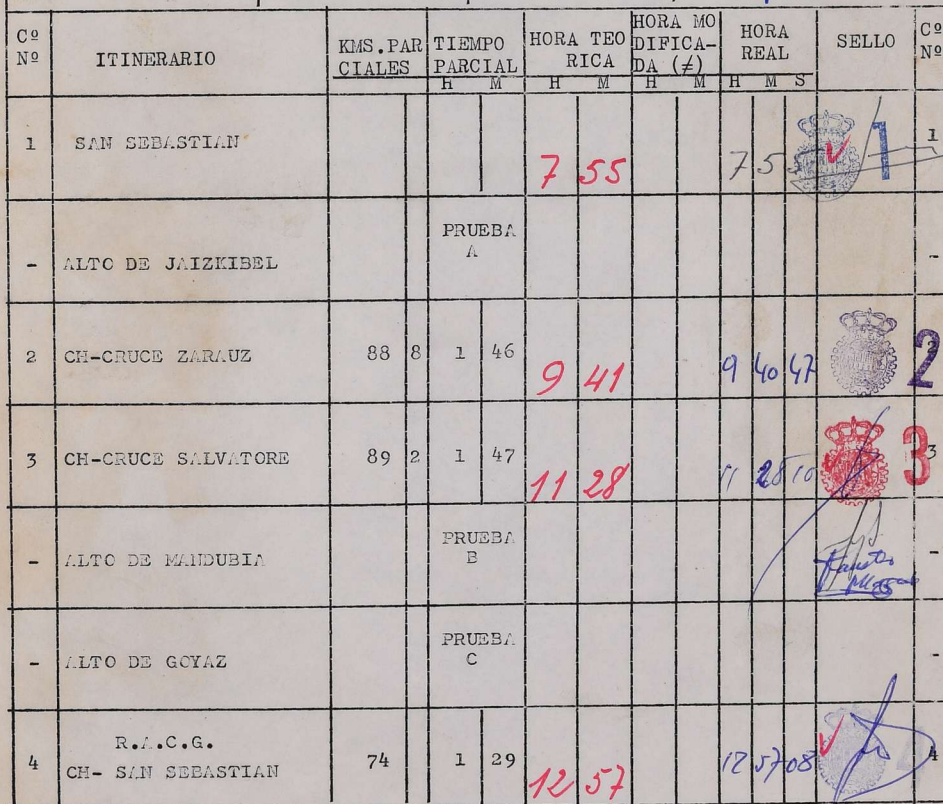 Cº Nº ITINERARIO KMS.PARCIALES TIEMPO PARCIAL HORA TEORICA HORA MODIFICADA (≠) HORA REAL SELLO Cº Nº
H M H M H M H M S
1 SAN SEBASTIAN 7 55 7 55 1 1
PRUEBA A
- ALTO DE JAIZKIBEL -
2 CH-CRUCE ZARAUZ 88 8 1 46 9 41 9 40 47 2 2
3 CH-CRUCE SALVATORE 89 2 1 47 11 28 11 28 10 3 3
PRUEBA B
- ALTO DE MANDUBIA -
PRUEBA C
- ALTO DE GOYAZ -
R.A.C.G.
4 CH- SAN SEBASTIAN 74 1 29 12 57 12 57 08 4